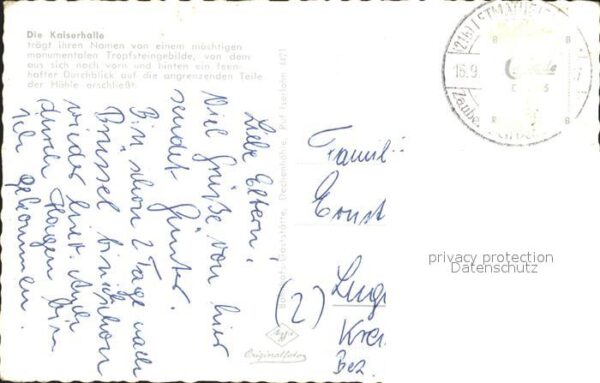 Die Kaiserhalle
trägt ihren Namen von einem mächtigen
monumentalen Tropfsteingebilde, von dem
aus sich nach vorn und hinten ein feen-
hafter Durchblick auf die angrenzenden Teile
der Höhle erschließt.
Liebe Eltern!
Viel Grüße von hier
sendet Günter.
Bin schon 2 Tage nach
Brüssel bin schon
wieder Auch
durch Hagen bin
ich gekommen.
Dechenhöhle, Ruf Iserlohn
Originalfoto
(2)
Famil
Ernst
Kre
Bez.
15.9.
privacy protection
Datenschutz